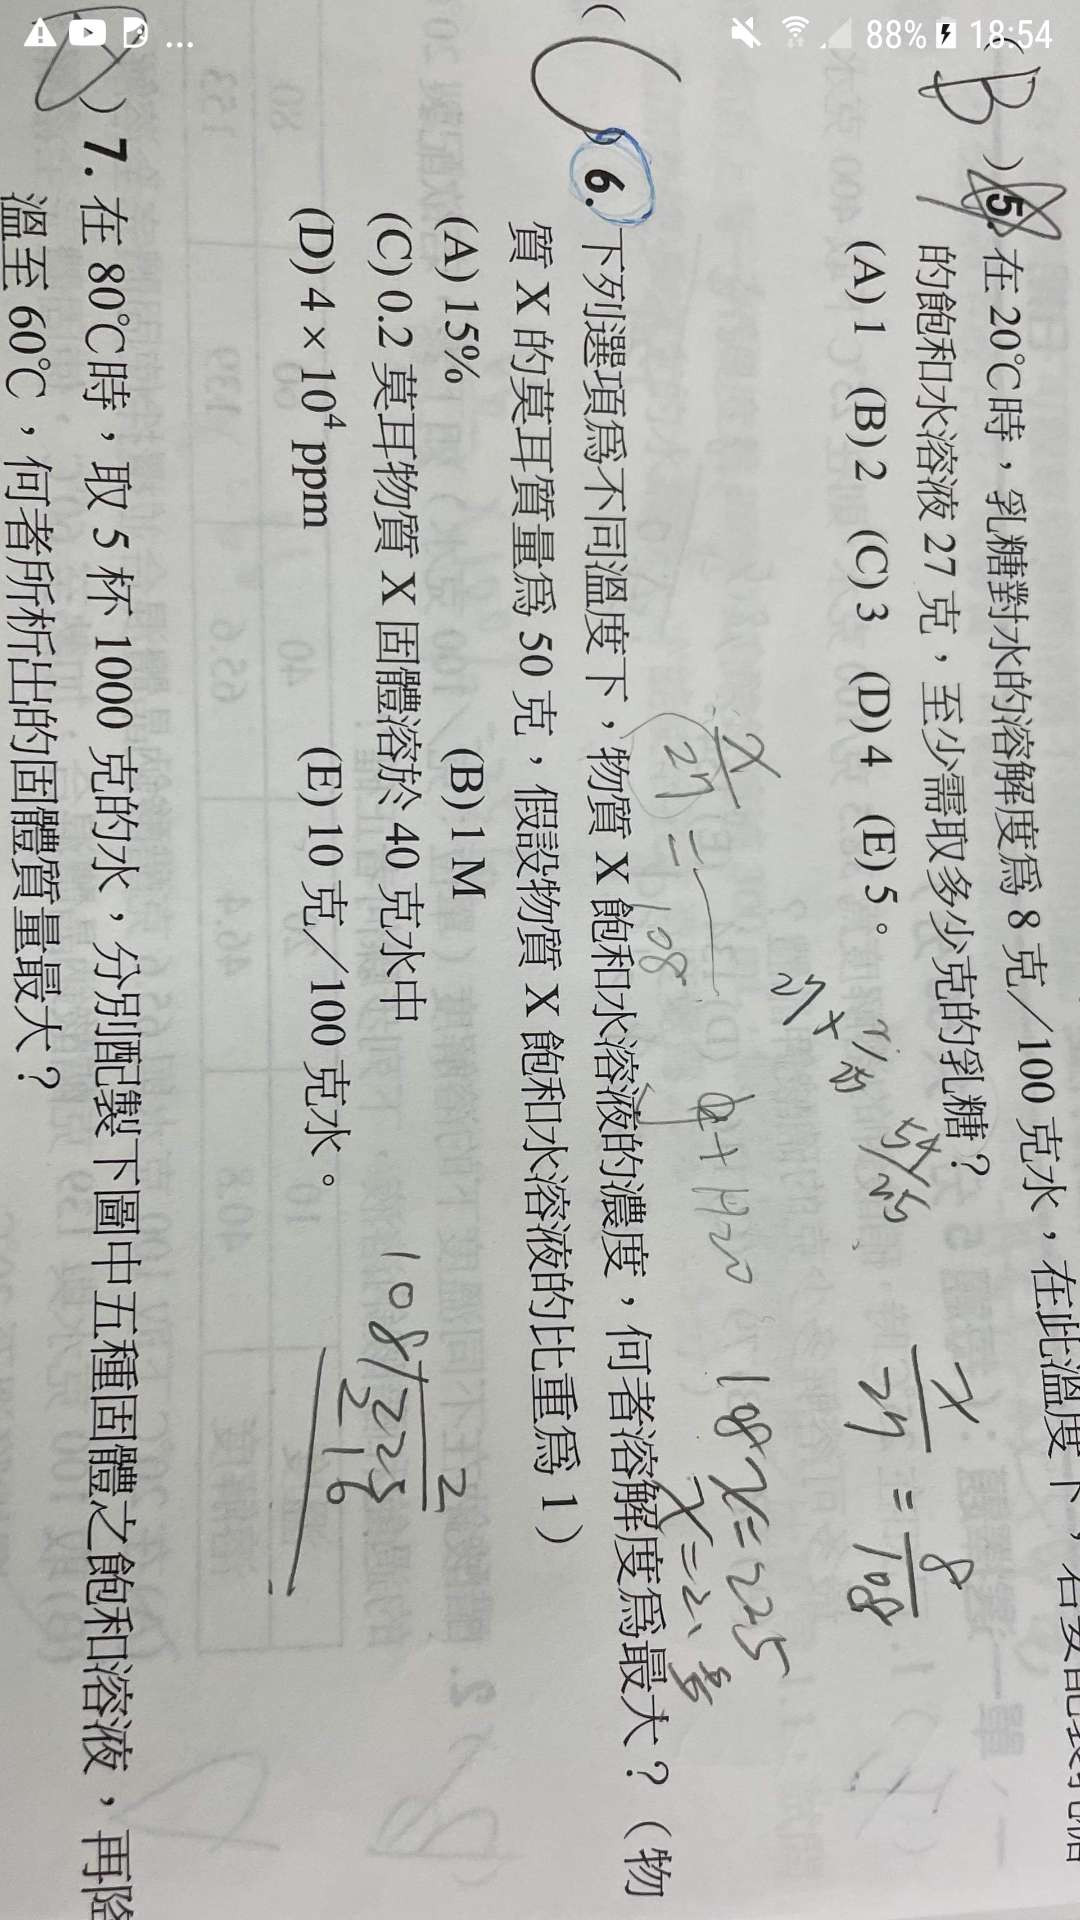 88% 18:54
(B) 5. 在 20℃時，乳糖對水的溶解度為 8 克／100 克水，在此溫度下，若要配製乳糖
的飽和水溶液 27 克，至少需取多少克的乳糖？
(A) 1 (B) 2 (C) 3 (D) 4 (E) 5。
27 ×
x/27 = 8/108
108x = 225
(C) 6. 下列選項為不同溫度下，物質 X 飽和水溶液的濃度，何者溶解度為最大？（物
質 X 的莫耳質量為 50 克，假設物質 X 飽和水溶液的比重為 1）
(A) 15% (B) 1 M
(C) 0.2 莫耳物質 X 固體溶於 40 克水中
(D) 4 × 10⁴ ppm (E) 10 克／100 克水。
2
108/225
216
) 7. 在 80℃時，取 5 杯 1000 克的水，分別配製下圖中五種固體之飽和溶液，再降
溫至 60℃，何者所析出的固體質量最大？